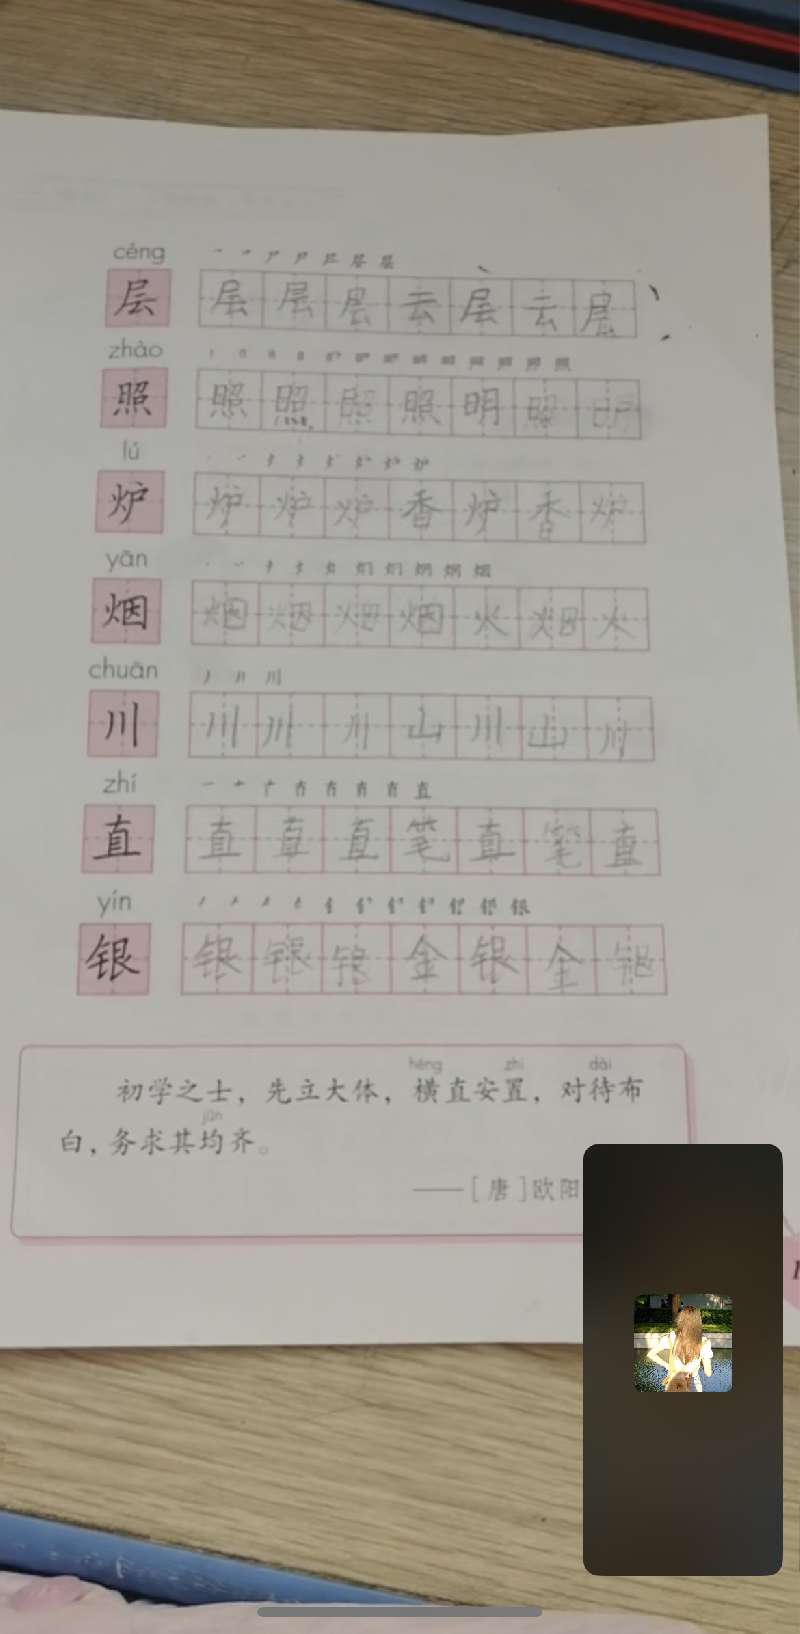 céng
层 层 层 层 云 层 云 层
zhào
照 照 照 照 照 明 照 明
lú
炉 炉 炉 炉 香 炉 香 炉
yān
烟 烟 烟 烟 烟 火 烟 火
chuān
川 川 川 川 山 川 山 川
zhí
直 直 直 直 笔 直 笔 直
yín
银 银 银 银 金 银 金 银
héng zhì dài
初学之士，先立大体，横直安置，对待布
jūn
白，务求其均齐。
——［唐］欧阳